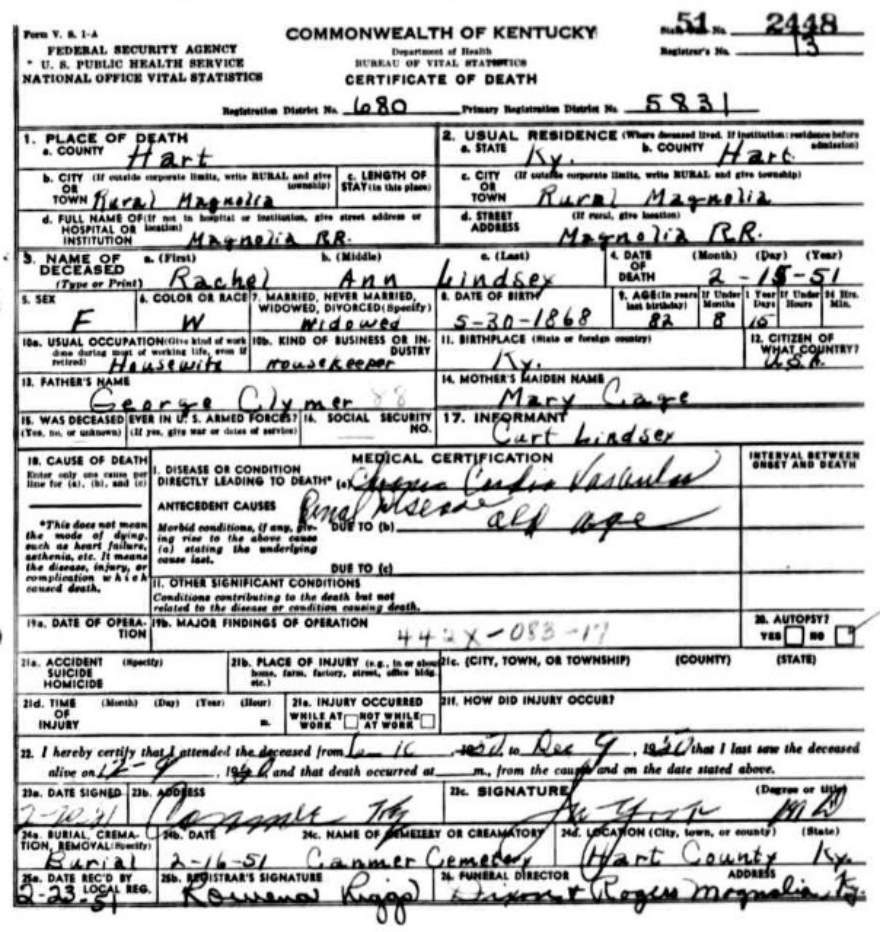 Form V. S. 1-A
FEDERAL SECURITY AGENCY
U. S. PUBLIC HEALTH SERVICE
NATIONAL OFFICE VITAL STATISTICS
COMMONWEALTH OF KENTUCKY
Department of Health
BUREAU OF VITAL STATISTICS
CERTIFICATE OF DEATH
51 No. 2448
Registrar's No. 13
Registration District No. 680 Primary Registration District No. 5831
1. PLACE OF DEATH
a. COUNTY Hart
2. USUAL RESIDENCE (Where deceased lived. If institution: residence before admission)
a. STATE Ky. b. COUNTY Hart
b. CITY (If outside corporate limits, write RURAL and give township)
OR
TOWN Rural Magnolia
c. LENGTH OF STAY (in this place)
c. CITY (If outside corporate limits, write RURAL and give township)
OR
TOWN Rural Magnolia
d. FULL NAME OF (If not in hospital or institution, give street address or location)
HOSPITAL OR
INSTITUTION Magnolia RR.
d. STREET (If rural, give location)
ADDRESS Magnolia RR.
3. NAME OF DECEASED (Type or Print)
a. (First) b. (Middle) c. (Last)
Rachel Ann Lindsey
4. DATE OF DEATH (Month) (Day) (Year)
2-15-51
5. SEX
F
6. COLOR OR RACE
W
7. MARRIED, NEVER MARRIED, WIDOWED, DIVORCED (Specify)
Widowed
8. DATE OF BIRTH
5-30-1868
9. AGE (In years last birthday)
82
If Under 1 Year
Months Days
8 15
If Under 24 Hrs.
Hours Min.
10a. USUAL OCCUPATION (Give kind of work done during most of working life, even if retired)
Housewife
10b. KIND OF BUSINESS OR INDUSTRY
Housekeeper
11. BIRTHPLACE (State or foreign country)
Ky.
12. CITIZEN OF WHAT COUNTRY?
U.S.A.
13. FATHER'S NAME
George Clymer 88
14. MOTHER'S MAIDEN NAME
Mary Cage
15. WAS DECEASED EVER IN U. S. ARMED FORCES?
(Yes, no, or unknown) (If yes, give war or dates of service)
16. SOCIAL SECURITY NO.
17. INFORMANT
Curt Lindsey
18. CAUSE OF DEATH
Enter only one cause per line for (a), (b), and (c)
*This does not mean the mode of dying, such as heart failure, asthenia, etc. It means the disease, injury, or complication which caused death.
MEDICAL CERTIFICATION
INTERVAL BETWEEN ONSET AND DEATH
I. DISEASE OR CONDITION
DIRECTLY LEADING TO DEATH* (a) Chronic Cardio Vascular
Renal Disease
ANTECEDENT CAUSES
Morbid conditions, if any, giving rise to the above cause (a) stating the underlying cause last.
DUE TO (b) old age
DUE TO (c)
II. OTHER SIGNIFICANT CONDITIONS
Conditions contributing to the death but not related to the disease or condition causing death.
19a. DATE OF OPERATION
19b. MAJOR FINDINGS OF OPERATION
442X-083-17
20. AUTOPSY?
YES NO
21a. ACCIDENT (Specify)
SUICIDE
HOMICIDE
21b. PLACE OF INJURY (e.g., in or about home, farm, factory, street, office bldg. etc.)
21c. (CITY, TOWN, OR TOWNSHIP) (COUNTY) (STATE)
21d. TIME OF INJURY (Month) (Day) (Year) (Hour) m.
21e. INJURY OCCURRED
WHILE AT WORK NOT WHILE AT WORK
21f. HOW DID INJURY OCCUR?
22. I hereby certify that I attended the deceased from 1950 to Dec 9, 1950 that I last saw the deceased
alive on 12-9, 1950, and that death occurred at m., from the causes and on the date stated above.
23a. DATE SIGNED
23b. ADDRESS
Ky
23c. SIGNATURE (Degree or title)
M D
24a. BURIAL, CREMATION, REMOVAL (Specify)
Burial
24b. DATE
2-16-51
24c. NAME OF CEMETERY OR CREAMATORY
Canmer Cemetery
24d. LOCATION (City, town, or county) (State)
Hart County Ky.
25a. DATE REC'D BY LOCAL REG.
2-23-51
25b. REGISTRAR'S SIGNATURE
Rowena Riggs
26. FUNERAL DIRECTOR ADDRESS
Dixon & Rogers Magnolia, Ky.